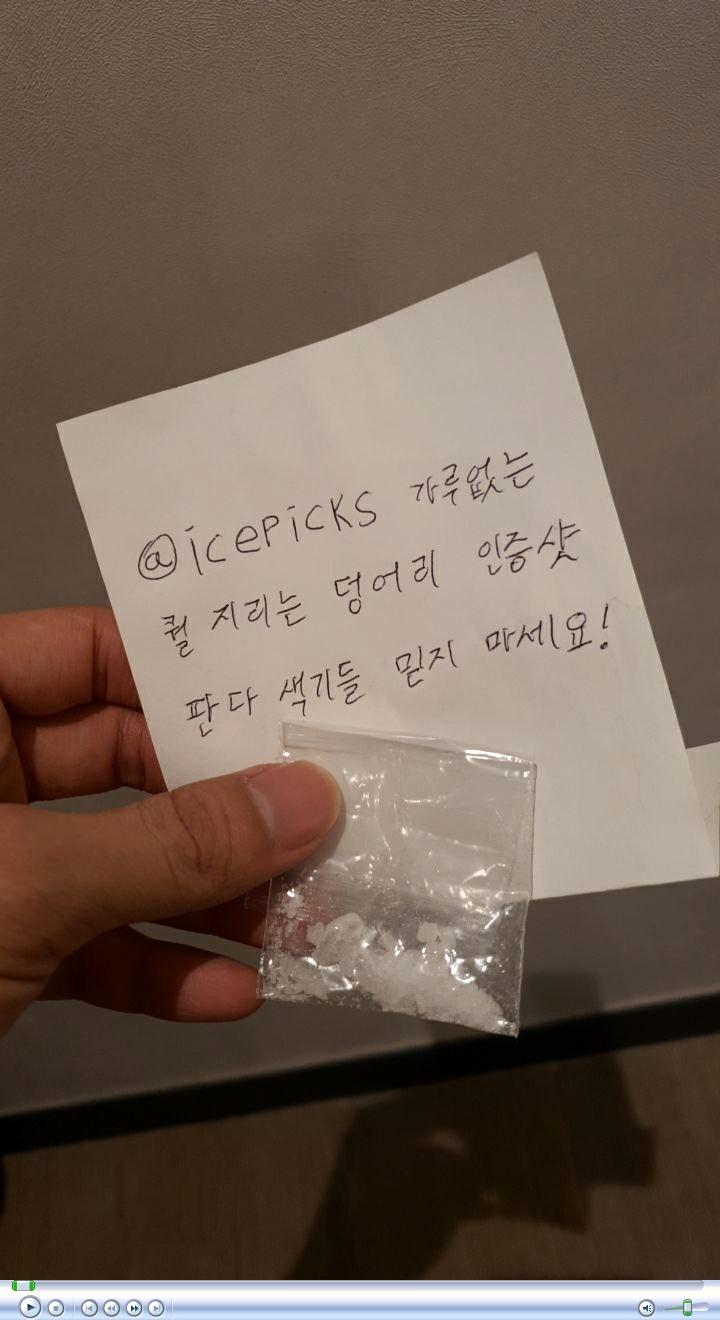 @icepicks 가루없는
퀄 지리는 덩어리 인증샷
판다 색기들 믿지 마세요!